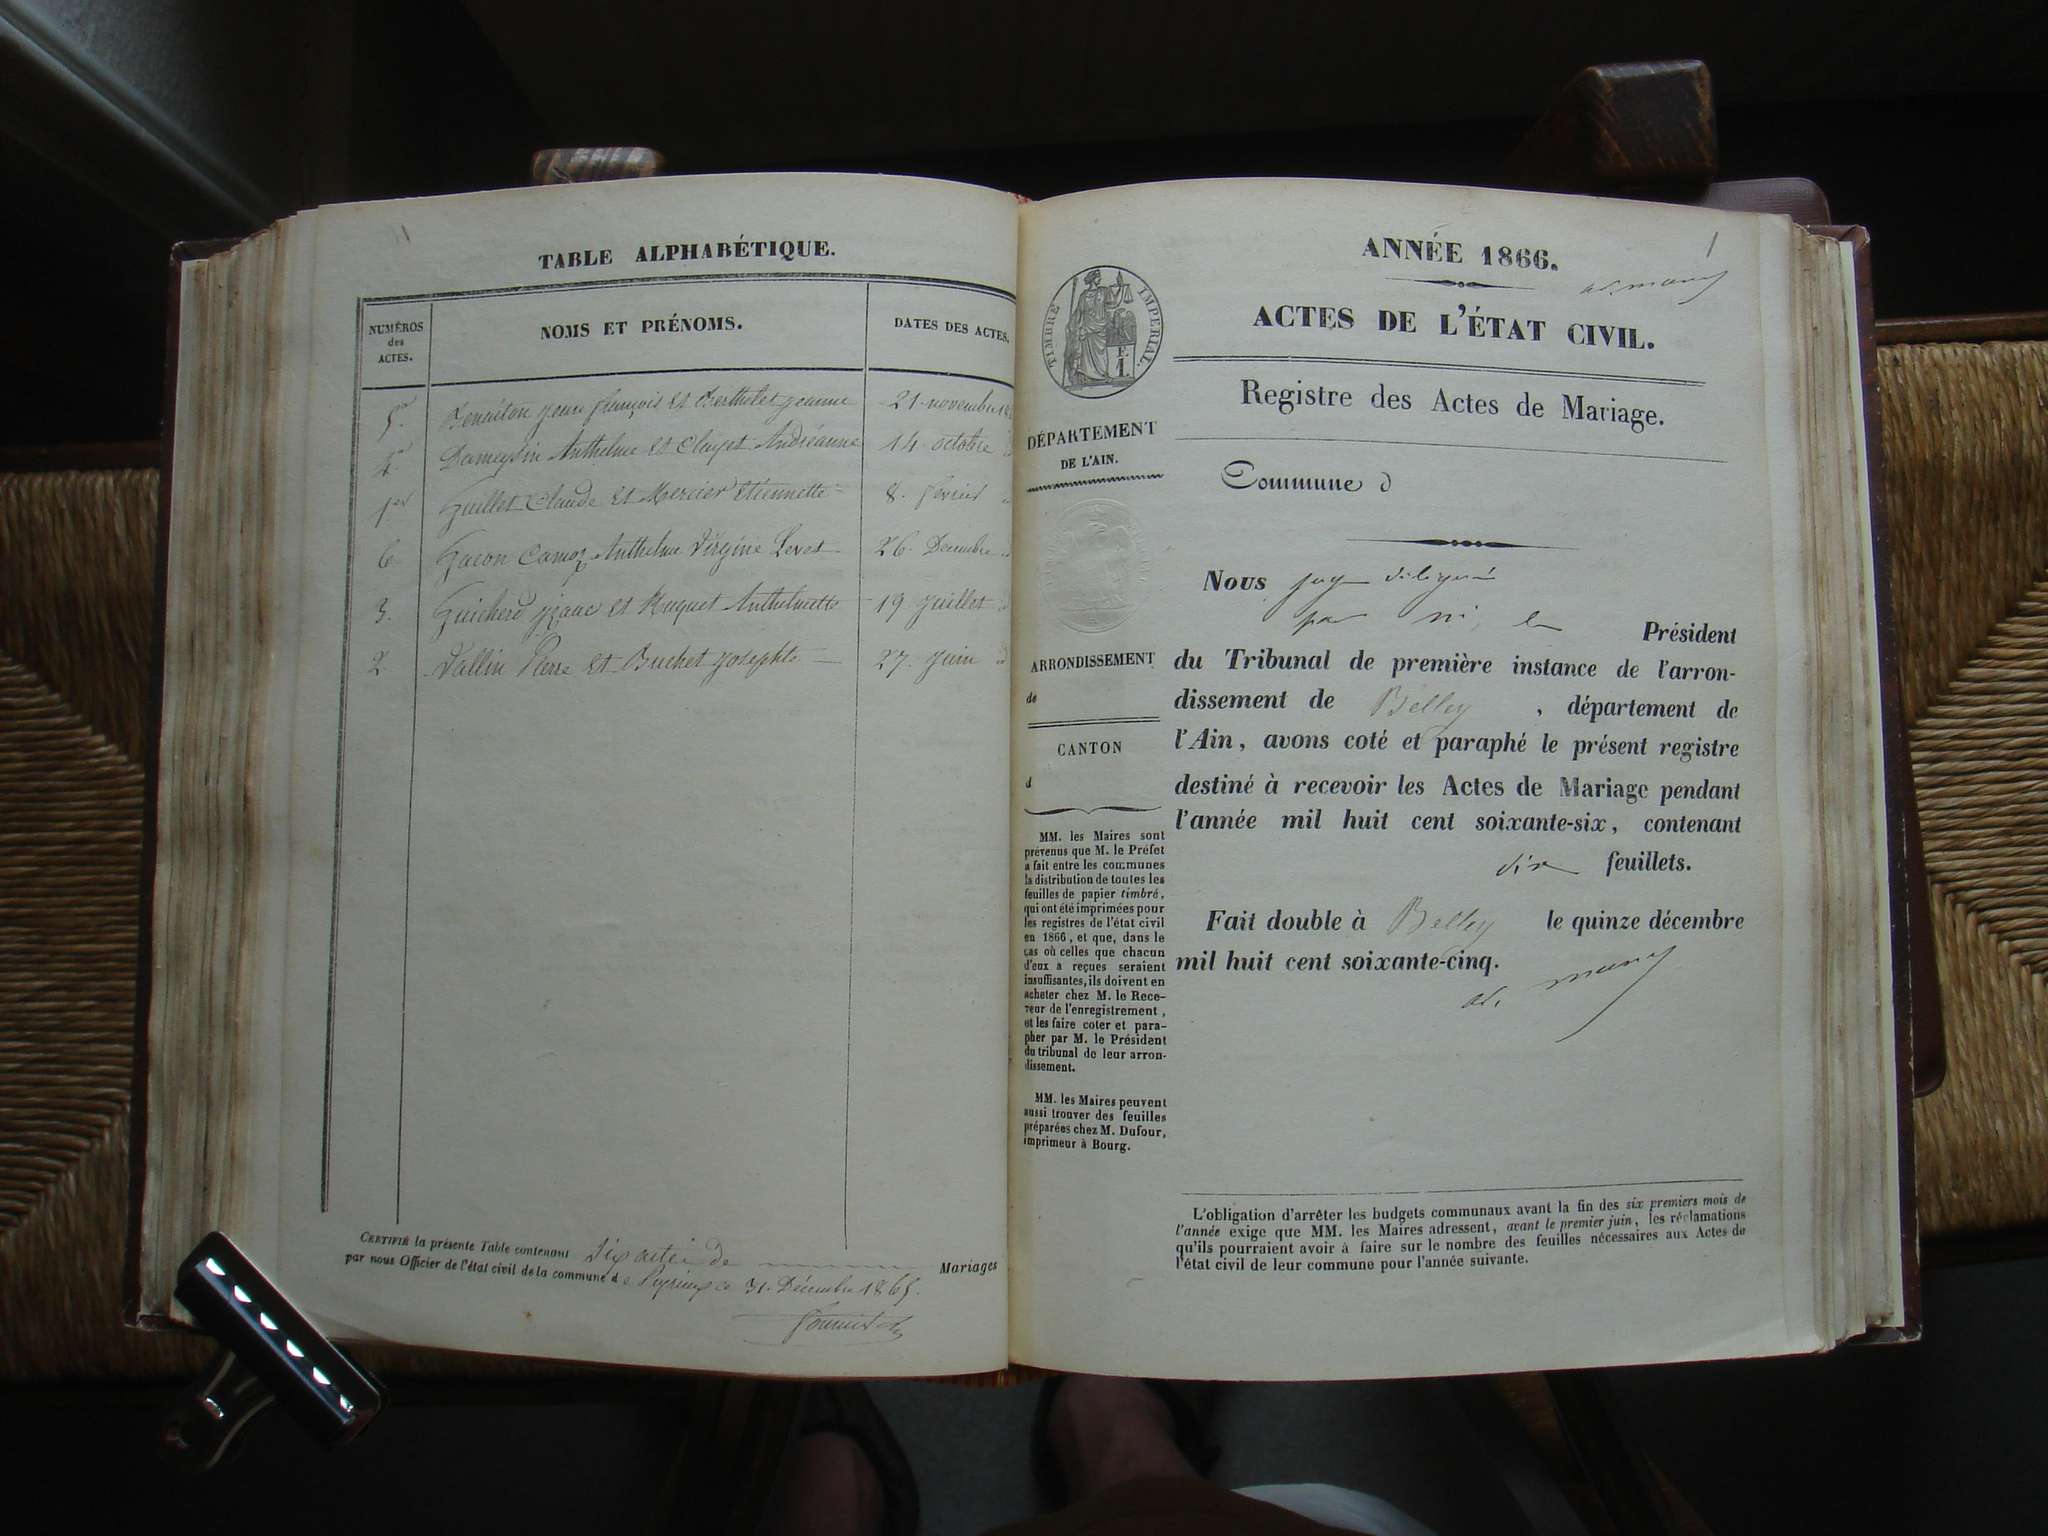 TABLE ALPHABÉTIQUE.
NUMÉROS
des
ACTES.
NOMS ET PRÉNOMS.
DATES DES ACTES.
5. jean françois et Berthelet jeanne 21 novembre
4. Dameysin Anthelme et Clayet Andréanne 14 octobre
1er Guillet Claude et Mercier Etiennette 8. février
6 Gacon Camoz Anthelme Virginie Levet 26. Décembre
3. Guicherd et Ruguet Anthelmette 19 juillet
2 Vallin Pierre et Buchet josephte 27. juin
CERTIFIÉ la présente Table contenant Six actes de Mariages
par nous Officier de l'état civil de la commune de ce 31. Décembre 1865.
1
ANNÉE 1866.
TIMBRE IMPÉRIAL.
F.
1.
ACTES DE L'ÉTAT CIVIL.
Registre des Actes de Mariage.
DÉPARTEMENT
DE L'AIN.
Commune d
ARRONDISSEMENT
de
CANTON
d
MM. les Maires sont
prévenus que M. le Préfet
a fait entre les communes
la distribution de toutes les
feuilles de papier timbré,
qui ont été imprimées pour
les registres de l'état civil
en 1866, et que, dans le
cas où celles que chacun
d'eux a reçues seraient
insuffisantes, ils doivent en
acheter chez M. le Rece-
veur de l'enregistrement,
et les faire coter et para-
pher par M. le Président
du tribunal de leur arron-
dissement.
MM. les Maires peuvent
aussi trouver des feuilles
préparées chez M. Dufour,
imprimeur à Bourg.
Nous juge délégué
par le Président
du Tribunal de première instance de l'arron-
dissement de Belley, département de
l'Ain, avons coté et paraphé le présent registre
destiné à recevoir les Actes de Mariage pendant
l'année mil huit cent soixante-six, contenant
dix feuillets.
Fait double à Belley le quinze décembre
mil huit cent soixante-cinq.
L'obligation d'arrêter les budgets communaux avant la fin des six premiers mois de
l'année exige que MM. les Maires adressent, avant le premier juin, les réclamations
qu'ils pourraient avoir à faire sur le nombre des feuilles nécessaires aux Actes de
l'état civil de leur commune pour l'année suivante.